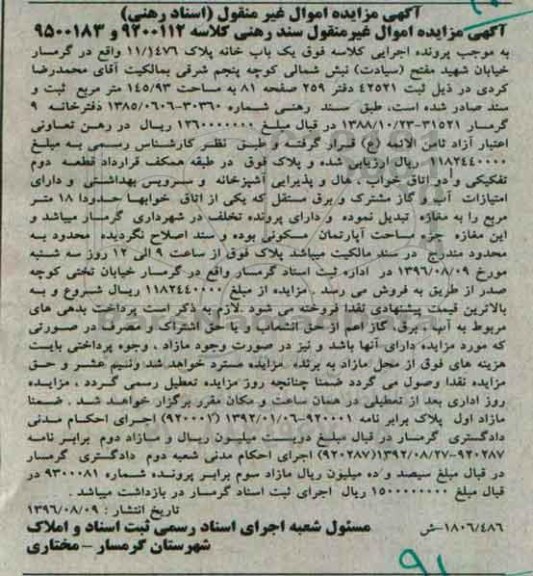 آگهی مزایده اموال غیر منقول (اسناد رهنی)
آگهی مزایده اموال غیرمنقول سند رهنی کلاسه ۹۲۰۰۱۱۲ و ۹۵۰۰۱۸۳
به موجب پرونده اجرایی کلاسه فوق یک باب خانه پلاک ۱۱/۱۴۷۶ واقع در گرمسار
خیابان شهید مفتح (سیادت) نبش شمالی کوچه پنجم شرقی بمالکیت آقای محمدرضا
کردی در ذیل ثبت ۴۲۵۲۱ دفتر ۲۵۹ صفحه ۸۱ به مساحت ۱۴۵/۹۳ متر مربع ثبت و
سند صادر شده است، طبق سند رهنی شماره ۳۰۳۶۰-۱۳۸۵/۰۶/۰۶ دفترخانه ۹
گرمسار ۳۱۵۲۱-۱۳۸۸/۱۰/۲۳ در قبال مبلغ ۱۳۶۰۰۰۰۰۰۰ ریال در رهن تعاونی
اعتبار آزاد ثامن الائمه (ع) قرار گرفته و طبق نظر کارشناس رسمی به مبلغ
۱۱۸۲۴۴۰۰۰۰ ریال ارزیابی شده و پلاک فوق در طبقه همکف قرارداد قطعه دوم
تفکیکی و دو اتاق خواب، هال و پذیرایی آشپزخانه و سرویس بهداشتی و دارای
امتیازات آب و گاز مشترک و برق مستقل که یکی از اتاق خوابها حدودا ۱۸ متر
مربع را به مغازه تبدیل نموده و دارای پرونده تخلف در شهرداری گرمسار میباشد و
این مغازه جزء مساحت آپارتمان مسکونی بوده و سند اصلاح نگردیده محدود به
محدود مندرج در سند مالکیت میباشد پلاک فوق از ساعت ۹ الی ۱۲ روز سه شنبه
مورخ ۱۳۹۶/۰۸/۰۹ در اداره ثبت اسناد گرمسار واقع در گرمسار خیابان تختی کوچه
صدر از طریق به فروش می رسد. مزایده از مبلغ ۱۱۸۲۴۴۰۰۰۰ ریال شروع و به
بالاترین قیمت پیشنهادی نقدا فروخته می شود. لازم به ذکر است پرداخت بدهی های
مربوط به آب، برق، گاز اعم از حق انشعاب و یا حق اشتراک و مصرف در صورتی
که مورد مزایده دارای آنها باشد و نیز در صورت وجود مازاد، وجوه پرداختی بابت
هزینه های فوق از محل مازاد به برنده مزایده مسترد خواهد شد ونیم عشر و حق
مزایده نقدا وصول می گردد ضمنا چنانچه روز مزایده تعطیل رسمی گردد، مزایده
روز اداری بعد از تعطیلی در همان ساعت و مکان مقرر برگزار خواهد شد. ضمنا
مازاد اول پلاک برابر نامه ۹۲۰۰۰۱-۱۳۹۲/۰۱/۰۶ (۹۲۰۰۰۱) اجرای احکام مدنی
دادگستری گرمسار در قبال مبلغ دویست میلیون ریال و مازاد دوم برابر نامه
۹۲۰۲۸۷-۱۳۹۲/۰۸/۲۷(۹۲۰۲۸۷) اجرای احکام مدنی شعبه دوم دادگستری گرمسار
در قبال مبلغ سیصد و ده میلیون ریال مازاد سوم برابر پرونده شماره ۹۳۰۰۰۸۱ در
قبال مبلغ ۱۵۰۰۰۰۰۰۰۰ ریال اجرای ثبت اسناد گرمسار در بازداشت میباشد.
تاریخ انتشار: ۱۳۹۶/۰۸/۰۹
۱۸۰۶/۴۸۶-ش مسئول شعبه اجرای اسناد رسمی ثبت اسناد و املاک
شهرستان گرمسار – مختاری
۹۱